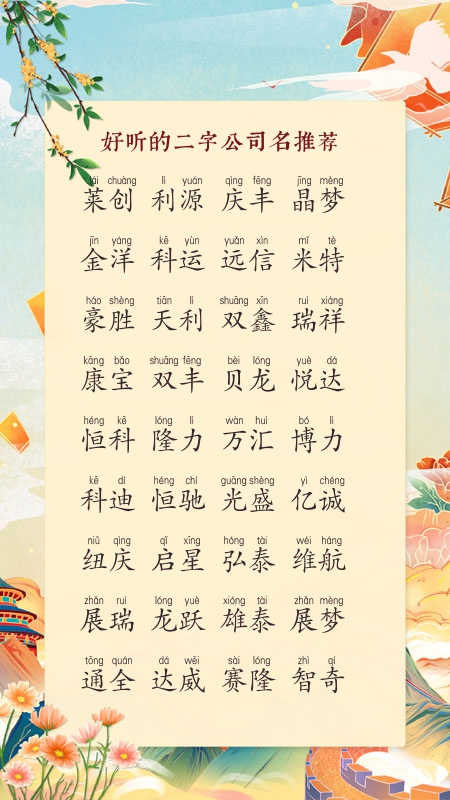 好听的二字公司名推荐
lái chuàng lì yuán qìng fēng jīng mèng
莱创 利源 庆丰 晶梦
jīn yáng kē yùn yuǎn xìn mǐ tè
金洋 科运 远信 米特
háo shèng tiān lì shuāng xīn ruì xiáng
豪胜 天利 双鑫 瑞祥
kāng bǎo shuāng fēng bèi lóng yuè dá
康宝 双丰 贝龙 悦达
héng kē lóng lì wàn huì bó lì
恒科 隆力 万汇 博力
kē dí héng chí guāng shèng yì chéng
科迪 恒驰 光盛 亿诚
niǔ qìng qǐ xīng hóng tài wéi háng
纽庆 启星 弘泰 维航
zhǎn ruì lóng yuè xióng tài zhǎn mèng
展瑞 龙跃 雄泰 展梦
tōng quán dá wēi sài lóng zhì qí
通全 达威 赛隆 智奇